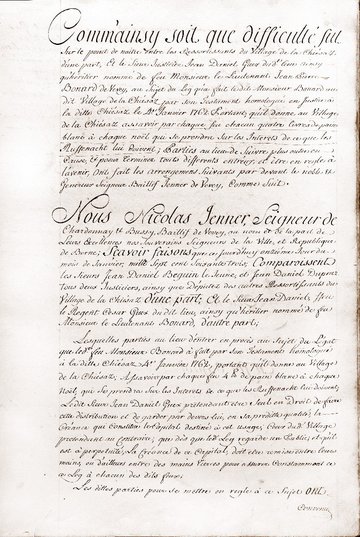 Comm'ainsy soit que difficulté fut
Sur le point de naître entre les Ressortissants du Village de la Chiésaz
d'une part, Et le Sieur Jean Daniel Gux dit lieu ainsy
qu'héritier nommé de feu Monsieur le Lieutenant Jean Pierre
Bonard de Vevey, au Sujet du Leg qu'a fait ledit Monsieur Bonard au
dit Village de la Chiésaz par son Testament homologué en Justice à
la ditte Chiésaz le 4e Janvier 1762 Portant, qu'il donne, au Village
de la Chiésaz, assavoir chaque feu chacun quatre livres de pain
blanc à chaque noël qui se prendra Sur les Interets de ce que les
Ruffenacht lui doivent; Parties au lieu de Suivre plus outre en
Cause, et pour terminer touts differents entr'eux, et être en règle à
l'avenir, Ont fait les arrangements Suivants par devant le noble et
Généreux Seigneur Baillif Jenner de Vevey, Comme Suit.
Nous Nicolas Jenner, Seigneur de
Chardonnay & Bussy, Baillif de Vevey, au nom et de la part de
Leurs Excellences nos Souverains Seigneurs de la Ville, et République
de Berne; Scavoir faisons que ce jourd'huy onzième Jour du
mois de Janvier, mille Sept cent Soixante trois, Comparoissent
les Sieurs Jean Daniel Beguin le Jeune, et Jean Daniel Dupraz
tous deux Justiciers, ainsy que Députés des autres Ressortissants du
Village de la Chiésaz d'une part; Et le Sieur Jean Daniel, ffeu
le Regent Cesar Gux du dit lieu, ainsy qu'héritier nommé de feu
Monsieur le Lieutenant Bonard, d'autre part;
Lesquelles parties au lieu d'entrer en procès au Sujet du Legat
que led. feu Monsieur Bonard a fait par Son Testament homologué
à la ditte Chiésaz le 4e Janvier 1762, portant qu'il donne au Village
de la Chiésaz, Assavoir par chaque feu 4 lb de pain blanc à chaque
Noël, que Se prendra Sur les Interets de ce que les Ruffenacht lui doivent;
Ledit Sieur Jean Daniel Gux pretendant être Seul en Droit de faire
cette distribution et de garder par devers lui, en Sa preditte qualité, la
Créance qui Constitue le Capital destiné à cet usage, Ceux dud. Village
pretendant au contraire, que dès que led. Leg regarde un Public, et qu'il
est à perpétuité, La Créance de ce Capital, doit etre remise entre leurs
mains, ou d'ailleurs entre des mains tierces pour assurer Constamment ce
Leg à chacun des dits feux;
Les dittes parties pour se mettre en regle à ce Sujet Ont
Convenu